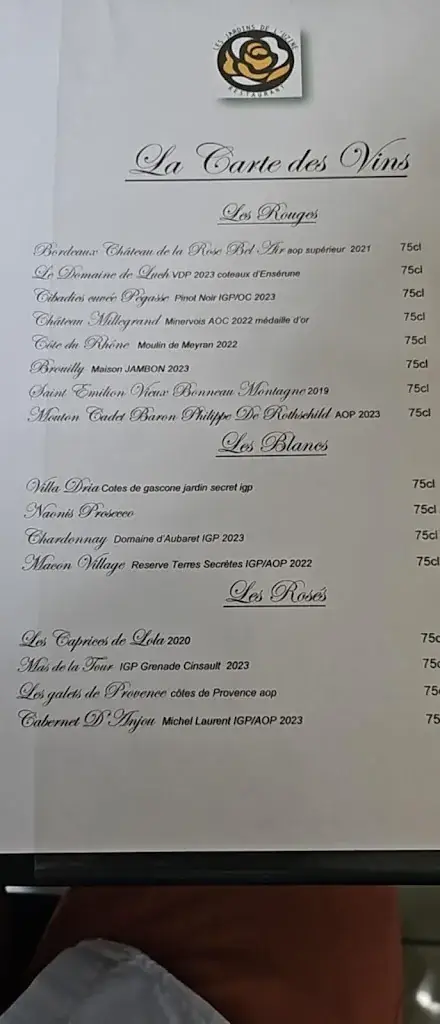 LES JARDINS DE L'UZINE
RESTAURANT
La Carte des Vins
Les Rouges
Bordeaux Château de la Rose Bel-Air aop supérieur 2021 75cl
Le Domaine de Luch VDP 2023 coteaux d'Ensérune 75cl
Cibadies cuvée Pégasse Pinot Noir IGP/OC 2023 75cl
Château Millegrand Minervois AOC 2022 médaille d'or 75cl
Côte du Rhône Moulin de Meyran 2022 75cl
Brouilly Maison JAMBON 2023 75cl
Saint Emilion Vieux Bonneau Montagne 2019 75cl
Mouton Cadet Baron Philippe De Rothschild AOP 2023 75cl
Les Blancs
Villa Dria Cotes de gascone jardin secret igp 75cl
Naonis Prosecco 75cl
Chardonnay Domaine d'Aubaret IGP 2023 75cl
Macon Village Reserve Terres Secrètes IGP/AOP 2022 75cl
Les Rosés
Les Caprices de Lola 2020 75c
Mas de la Tour IGP Grenade Cinsault 2023 75c
Les galets de Provence côtes de Provence aop 75
Cabernet D'Anjou Michel Laurent IGP/AOP 2023 75